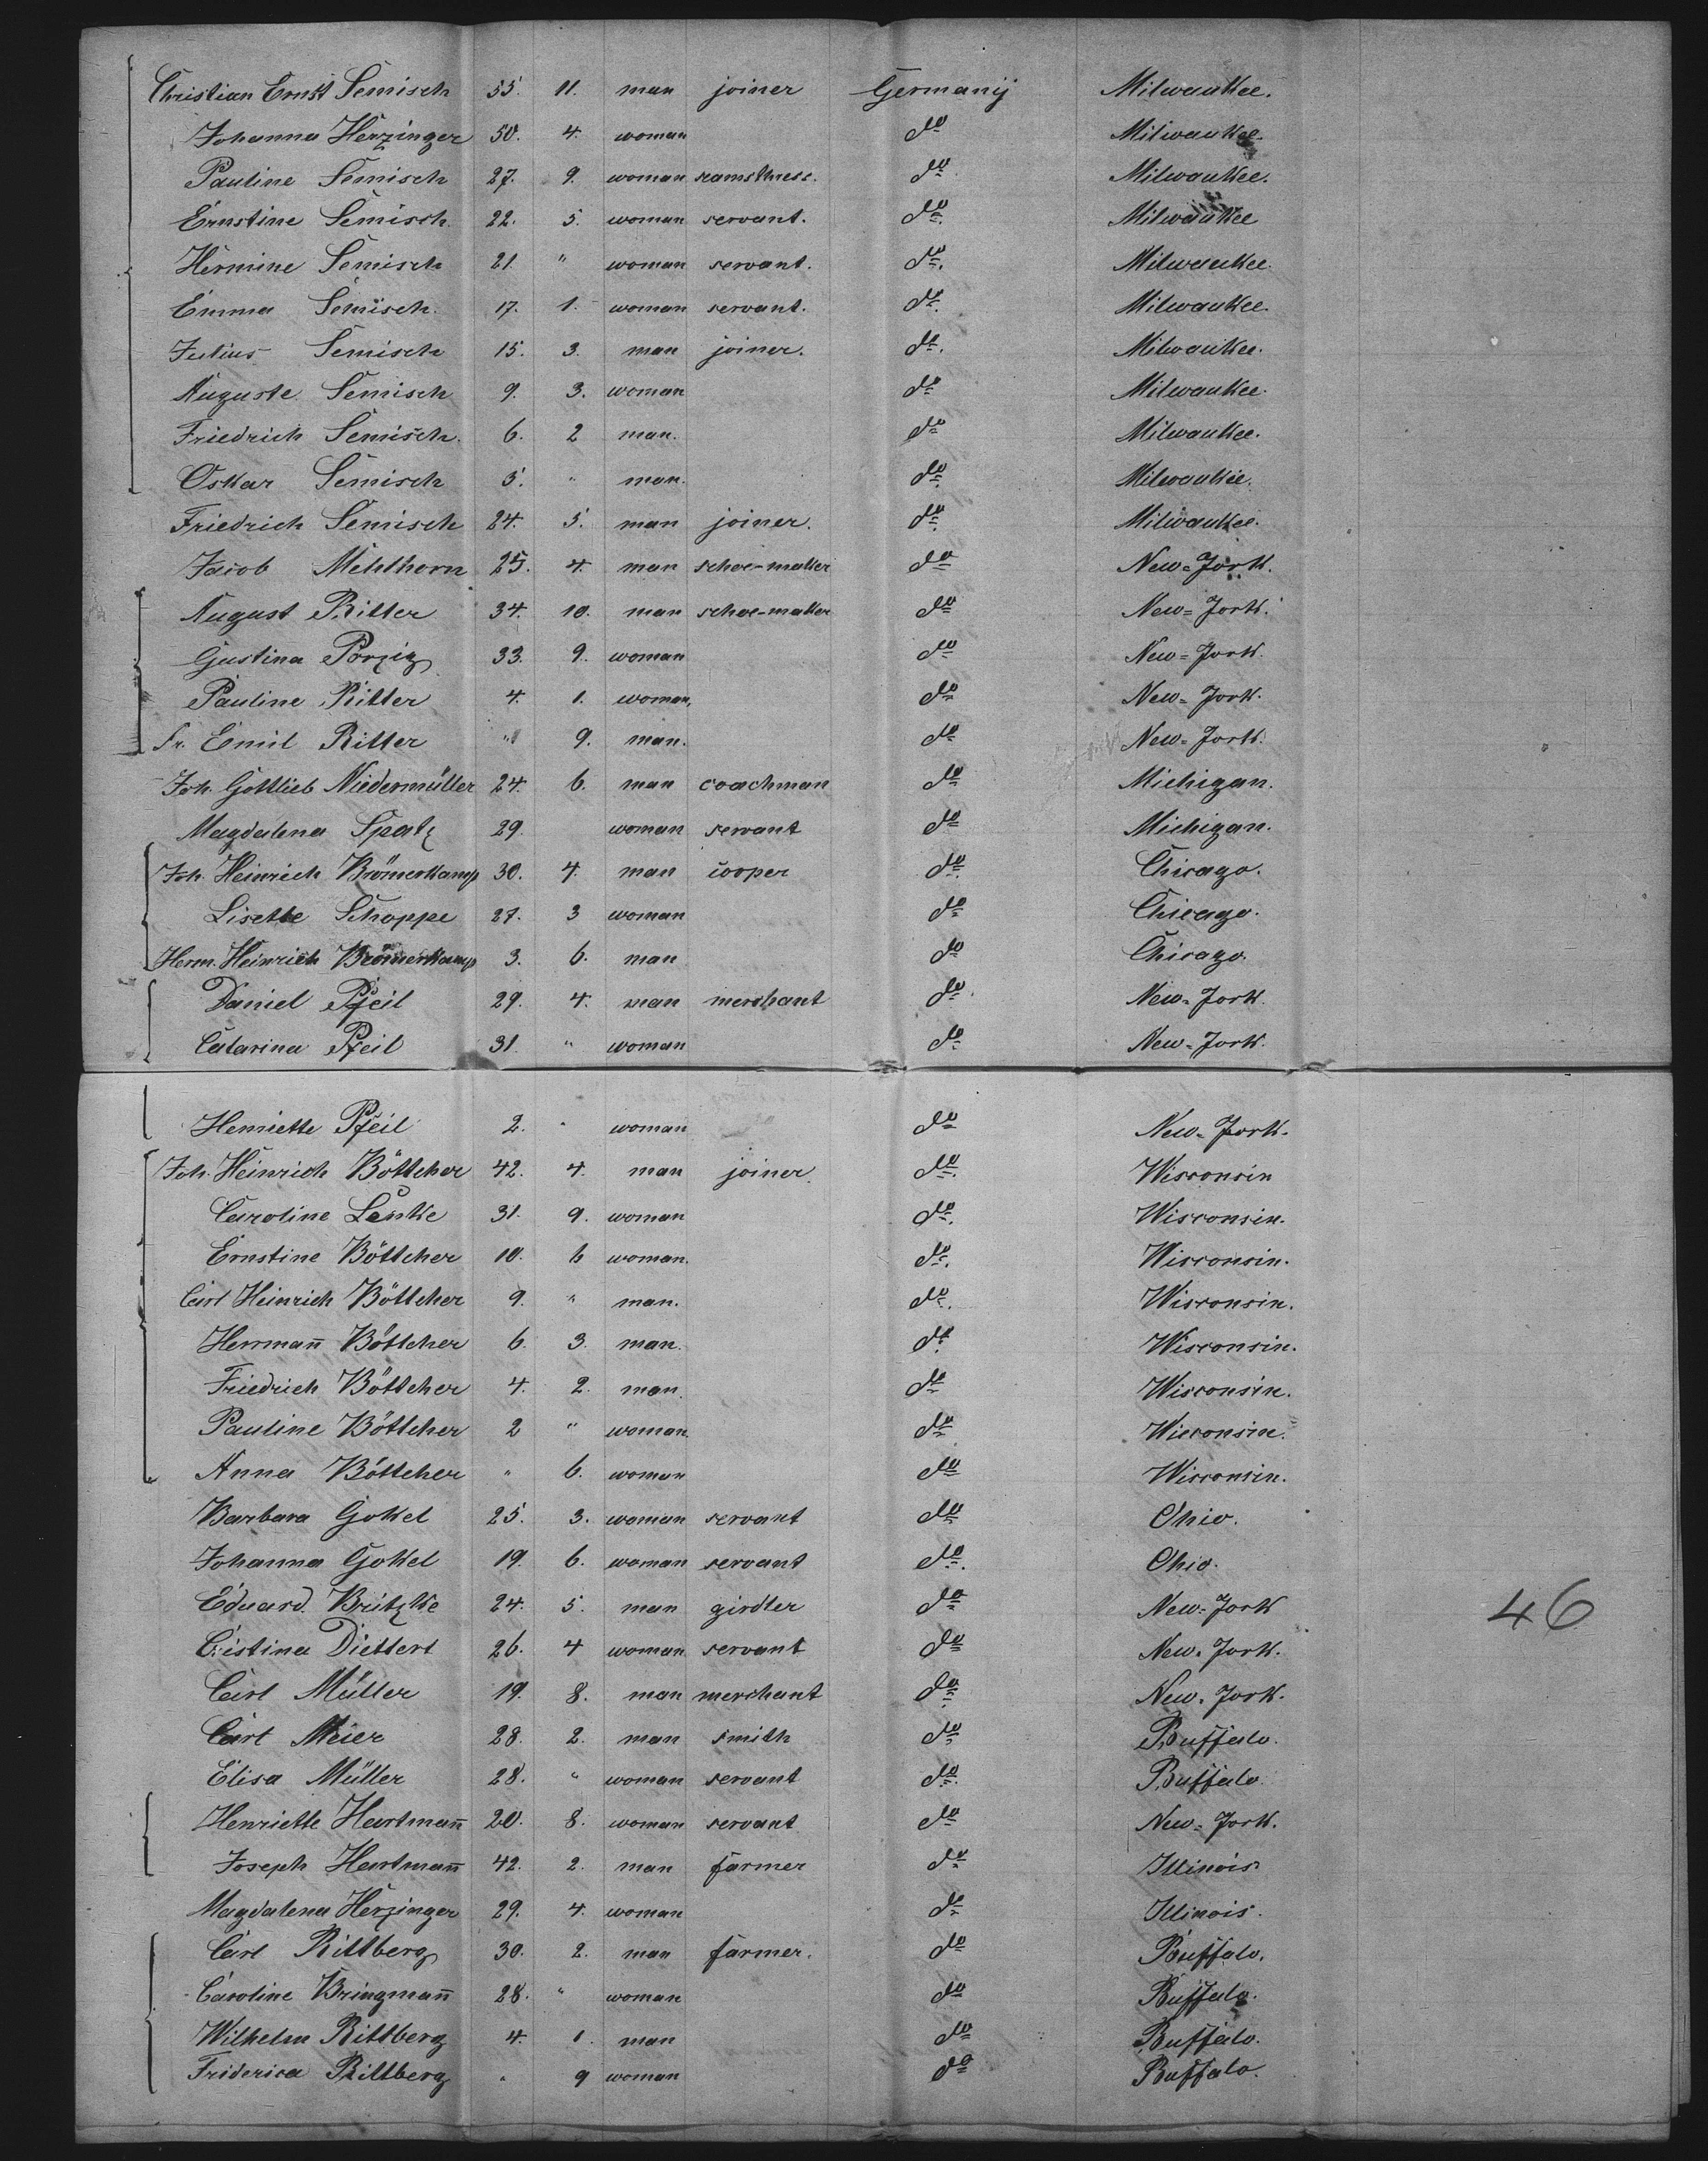 Christian Ernst Semisch 55. 11. man joiner Germanij Milwaukee.
Johanna Herzinger 50. 4. woman do Milwaukee.
Pauline Semisch 27. 9. woman seamsthress. do Milwaukee.
Ernstine Semisch. 22. 5. woman servant. do. Milwaukee
Hermine Semisch 21 " woman servant. do. Milwaukee.
Emma Semisch. 17. 1. woman servant. do. Milwaukee.
Julius Semisch 15. 3. man joiner. do. Milwaukee.
Auguste Semisch 9. 3. woman do Milwaukee.
Friedrich Semisch. 6. 2 man. do Milwaukee.
Oskar Semisch 3. " man. do. Milwaukee.
Friedrich Semisch 24. 5. man joiner. do. Milwaukee.
Jacob Mehlhorn 25. 4. man schoe-maker do New-Jork.
August Ritter 34. 10. man schoe-maker do New=Jork.
Gustina Porzig 33. 9. woman do New=Jork.
Pauline Ritter 4. 1. woman, do New=Jork.
Fr. Emil Ritter " 9. man. do New=Jork.
Joh. Gottlieb Niedermüller 24. 6. man coachman do Michigan.
Magdalena Spatz 29. woman servant do Michigan.
Joh. Heinrich Brömerkamp 30. 4. man cooper do. Chicago.
Lisette Schoppe 27. 3 woman do Chicago.
Herm. Heinrich Brömerkamp 3. 6. man do Chicago.
Daniel Pfeil 29. 4. man merchant do. New=Jork.
Catarina Pfeil 31. " woman do New=Jork.
Henriette Pfeil 2. " woman do New=Jork.
Joh. Heinrich Böttcher 42. 4. man joiner. do. Wisconsin
Caroline Lenke 31. 9. woman do. Wisconsin.
Ernstine Böttcher 10. 6 woman. do. Wisconsin.
Carl Heinrich Böttcher 9. " man. do. Wisconsin.
Hermann Böttcher 6. 3. man. do. Wisconsin.
Friedrich Böttcher 4. 2. man. do Wisconsin.
Pauline Böttcher 2 " woman. do Wisconsin.
Anna Böttcher " 6. woman do Wisconsin.
Barbara Gokel 25. 3. woman servant do Ohio.
Johanna Gokel 19. 6. woman servant do. Ohio.
Eduard Britzke 24. 5. man girdler do New=Jork
Cristina Diettert 26. 4 woman servant do New=Jork.
Carl Müller 19. 8. man merchant do New=Jork.
Carl Meier 28. 2. man smith do Buffalo.
Elisa Müller 28. " woman servant do. Buffalo.
Henriette Hartmann 20. 8. woman servant do New=Jork.
Joseph Hartmann 42. 2. man farmer do Illinois
Magdalena Herzinger 29. 4. woman do Illinois.
Carl Rittberg 30. 2. man farmer. do Buffalo.
Caroline Bringmann 28. " woman do Buffalo.
Wilhelm Rittberg 4. 1. man do Buffalo.
Friderica Rittberg " 9 woman do Buffalo.
46